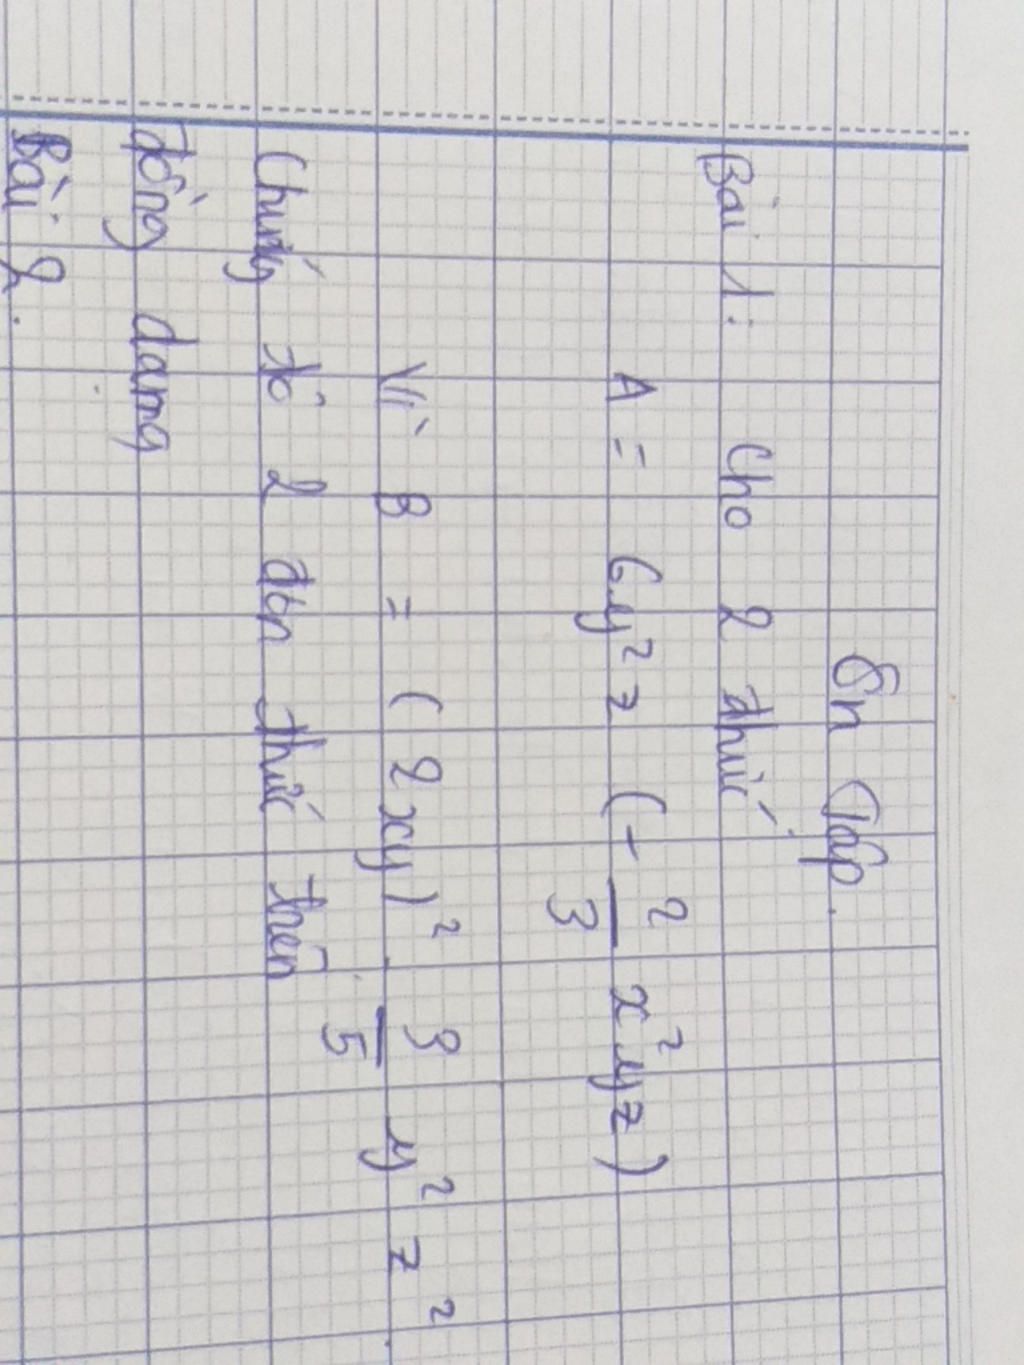 Ôn Tập.
Bài 1: Cho 2 đthức
A = 6y²z (- 2/3 x²yz)
Vì B = (2xy)² . 3/5 y² z²
Chứng tỏ 2 đơn thức trên
đồng dạng
Bài 2.